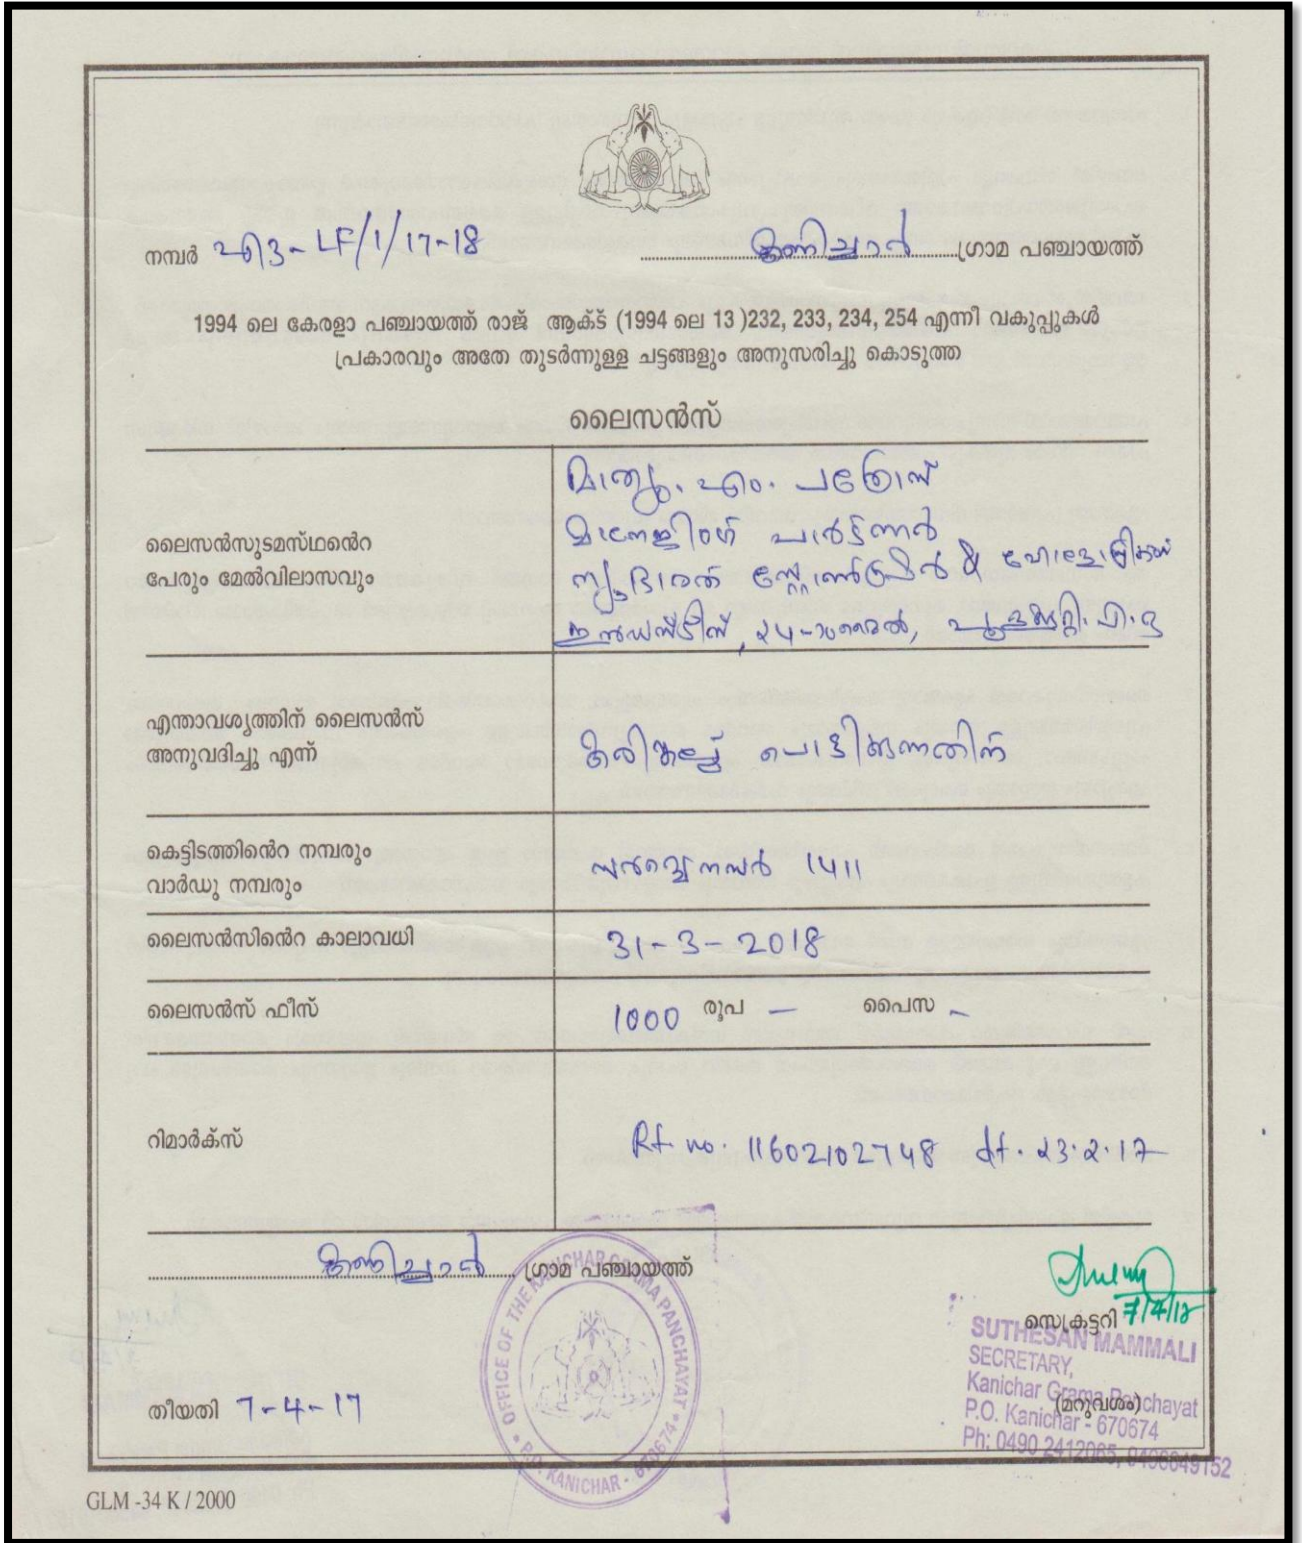 നമ്പർ എ3-LF/1/17-18
കണിച്ചാർ ഗ്രാമ പഞ്ചായത്ത്
1994 ലെ കേരളാ പഞ്ചായത്ത് രാജ് ആക്ട് (1994 ലെ 13 )232, 233, 234, 254 എന്നീ വകുപ്പുകൾ
പ്രകാരവും അതേ തുടർന്നുള്ള ചട്ടങ്ങളും അനുസരിച്ചു കൊടുത്ത
ലൈസൻസ്
ലൈസൻസുടമസ്ഥൻെറ
പേരും മേൽവിലാസവും
മാത്യു. എം. പത്രോസ്
മാനേജിംഗ് പാർട്ട്ണർ
ന്യൂഭാരത് സ്റ്റോൺക്രഷർ & ഹോളോബ്രിക്സ്
ഇൻഡസ്ട്രീസ്, 24-ാംമൈൽ, പൂളക്കുറ്റി. പി. ഒ
എന്താവശ്യത്തിന് ലൈസൻസ്
അനുവദിച്ചു എന്ന്
കരിങ്കല്ല് പൊട്ടിക്കുന്നതിന്
കെട്ടിടത്തിൻെറ നമ്പരും
വാർഡു നമ്പരും
സർവ്വെ നമ്പർ 1411
ലൈസൻസിൻെറ കാലാവധി
31-3-2018
ലൈസൻസ് ഫീസ്
1000 രൂപ — പൈസ -
റിമാർക്സ്
Rt. no. 11602102748 dt. 23.2.17
കണിച്ചാർ ഗ്രാമ പഞ്ചായത്ത്
OFFICE OF THE KANICHAR GRAMA PANCHAYAT
P.O. KANICHAR - 670674
സെക്രട്ടറി
SUTHESAN MAMMALI
SECRETARY,
Kanichar Grama Panchayat
(മറുവശം)
P.O. Kanichar - 670674
തീയതി 7-4-17
GLM -34 K / 2000